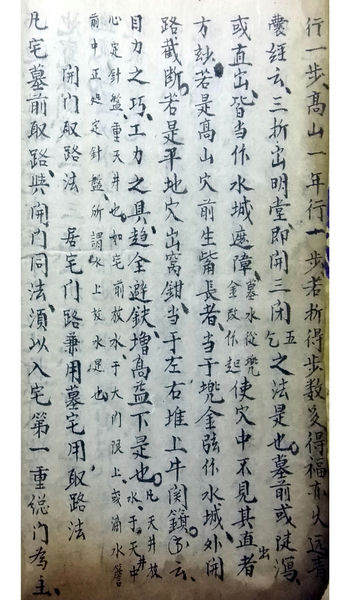 行一步、高山一年行一步若折得步数多得福亦久远書
云、三折出明堂、即開三閉五乞之法是也、墓前或陡瀉、
或直出、皆当作水城遮障、墓水從兜金弦作起使穴中不見其直者出
方妙、若是高山穴前生嘴長者、当于兜金弦作水城、外開
路截断、若是平地穴出窩鉗、当于左右堆上牛関鎖、云、
目力之巧、工力之具、趋全避缺、增高益下是也、凡天井放水、于天井中
心定針盤、重天井也、如宅前放水、于大門限上、或滴水簷
前中正处定針盤、所謂水上放水是也、
開门取路法 居宅门路兼用墓宅用取路法
凡宅墓前取路、與開門同法、須以入宅第一重総门為主、